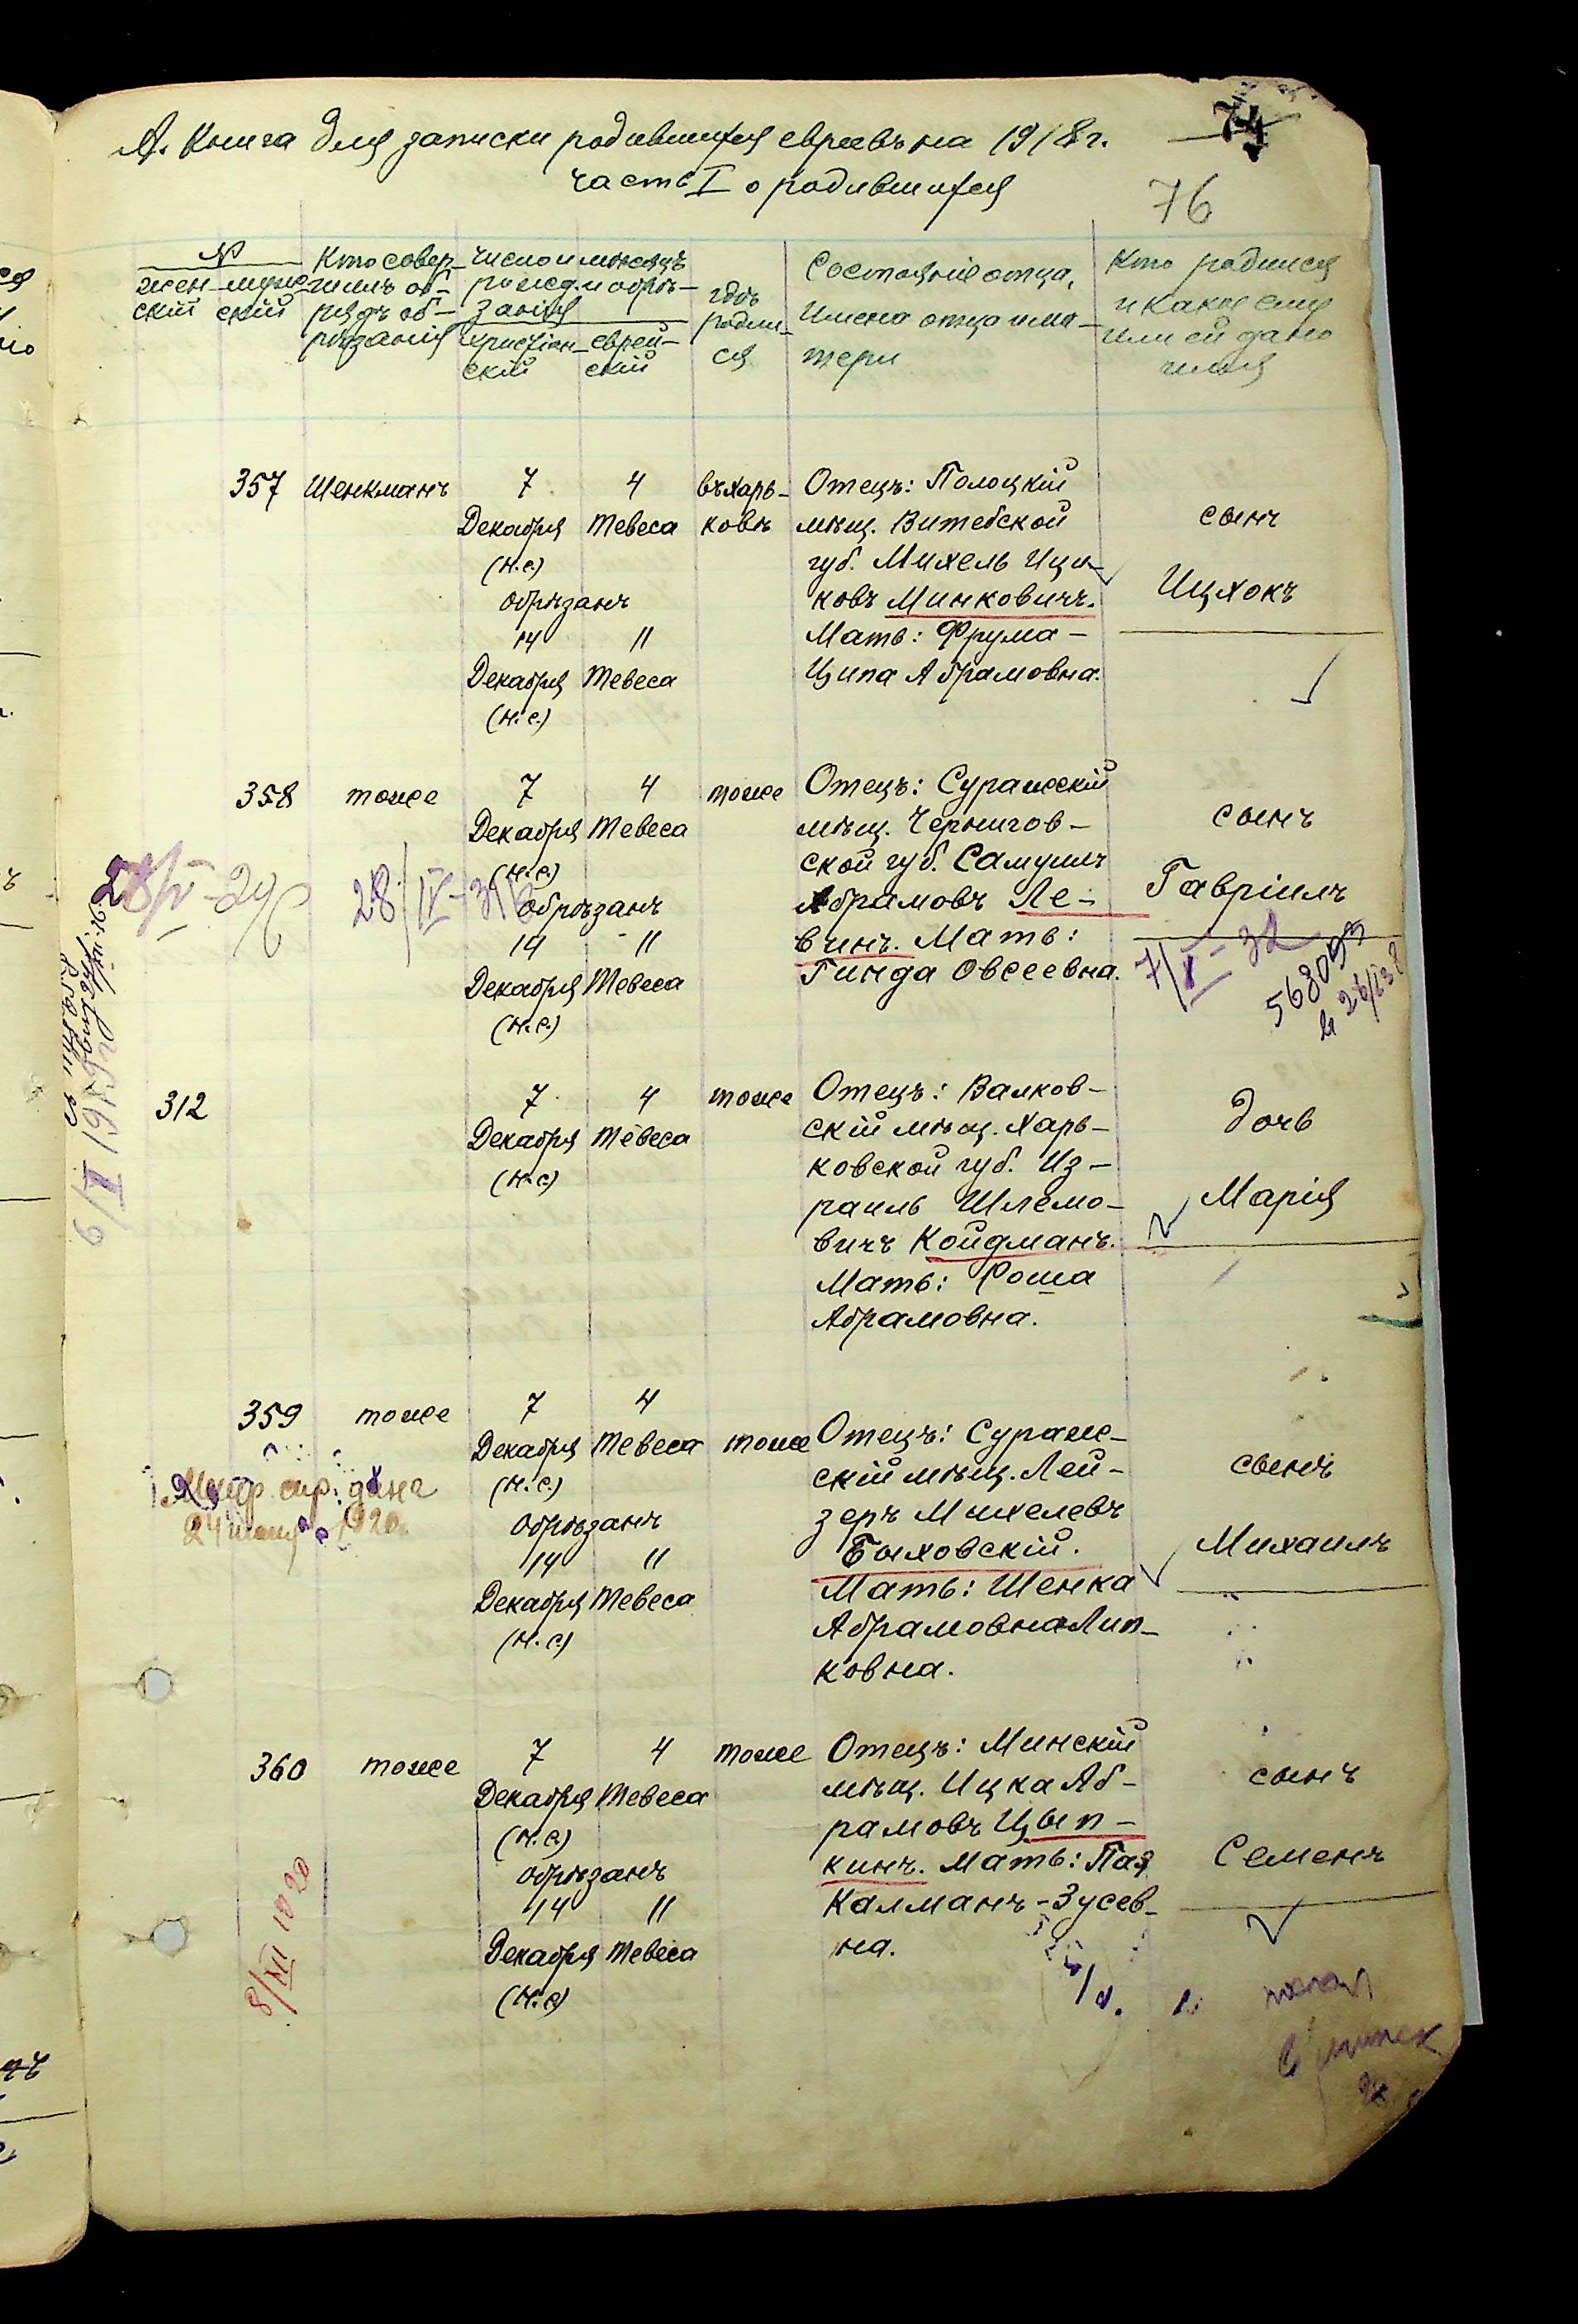 А. Книга для записки родившихся евреевъ на 1918 г.
74
часть I о родившихся
76
№
жен-
скій
муже-
скій
Кто совер-
шилъ об-
рядъ об-
рѣзанія
Число и мѣсяцъ
рожд. и обрѣ-
занія
христіан-
скій
еврей-
скій
гдѣ
родил-
ся
Состояніе отца,
имена отца и ма-
тери
Кто родился
и какое ему
или ей дано
имя
357
Шенкманъ
7
Декабря
(н.с.)
4
Тевеса
обрѣзанъ
14
Декабря
(н.с.)
11
Тевеса
въ Харь-
ковѣ
Отецъ: Полоцкій
мѣщ. Витебской
губ. Михель Ици-
ковъ Минковичъ.
Мать: Фрума-
Ципа Абрамовна.
сынъ
Ицхокъ
358
тоже
7
Декабря
(н.с.)
4
Тевеса
обрѣзанъ
14
Декабря
(н.с.)
11
Тевеса
тоже
Отецъ: Суражскій
мѣщ. Чернигов-
ской губ. Самуилъ
Абрамовъ Ле-
винъ. Мать:
Гинда Овсеевна.
сынъ
Гавріилъ
7/X-32
312
7
Декабря
(н.с)
4
Тевеса
тоже
Отецъ: Валков-
скій мѣщ. Харь-
ковской губ. Из-
раиль Шлемо-
вичъ Койдманъ.
Мать: Роша
Абрамовна.
дочь
Марія
359
тоже
7
Декабря
(н.с.)
4
Тевеса
обрѣзанъ
14
Декабря
(н.с)
11
Тевеса
тоже
Отецъ: Сураж-
скій мѣщ. Лей-
зеръ Михелевъ
Быховскій.
Мать: Шенка
Абрамовна Лип-
ковна.
сынъ
Михаилъ
360
тоже
7
Декабря
(н.с)
4
Тевеса
обрѣзанъ
14
Декабря
(н.с)
11
Тевеса
тоже
Отецъ: Минскій
мѣщ. Ицка Аб-
рамовъ Цып-
кинъ. Мать: Пая
Калманъ-Зусев-
на.
сынъ
Семенъ